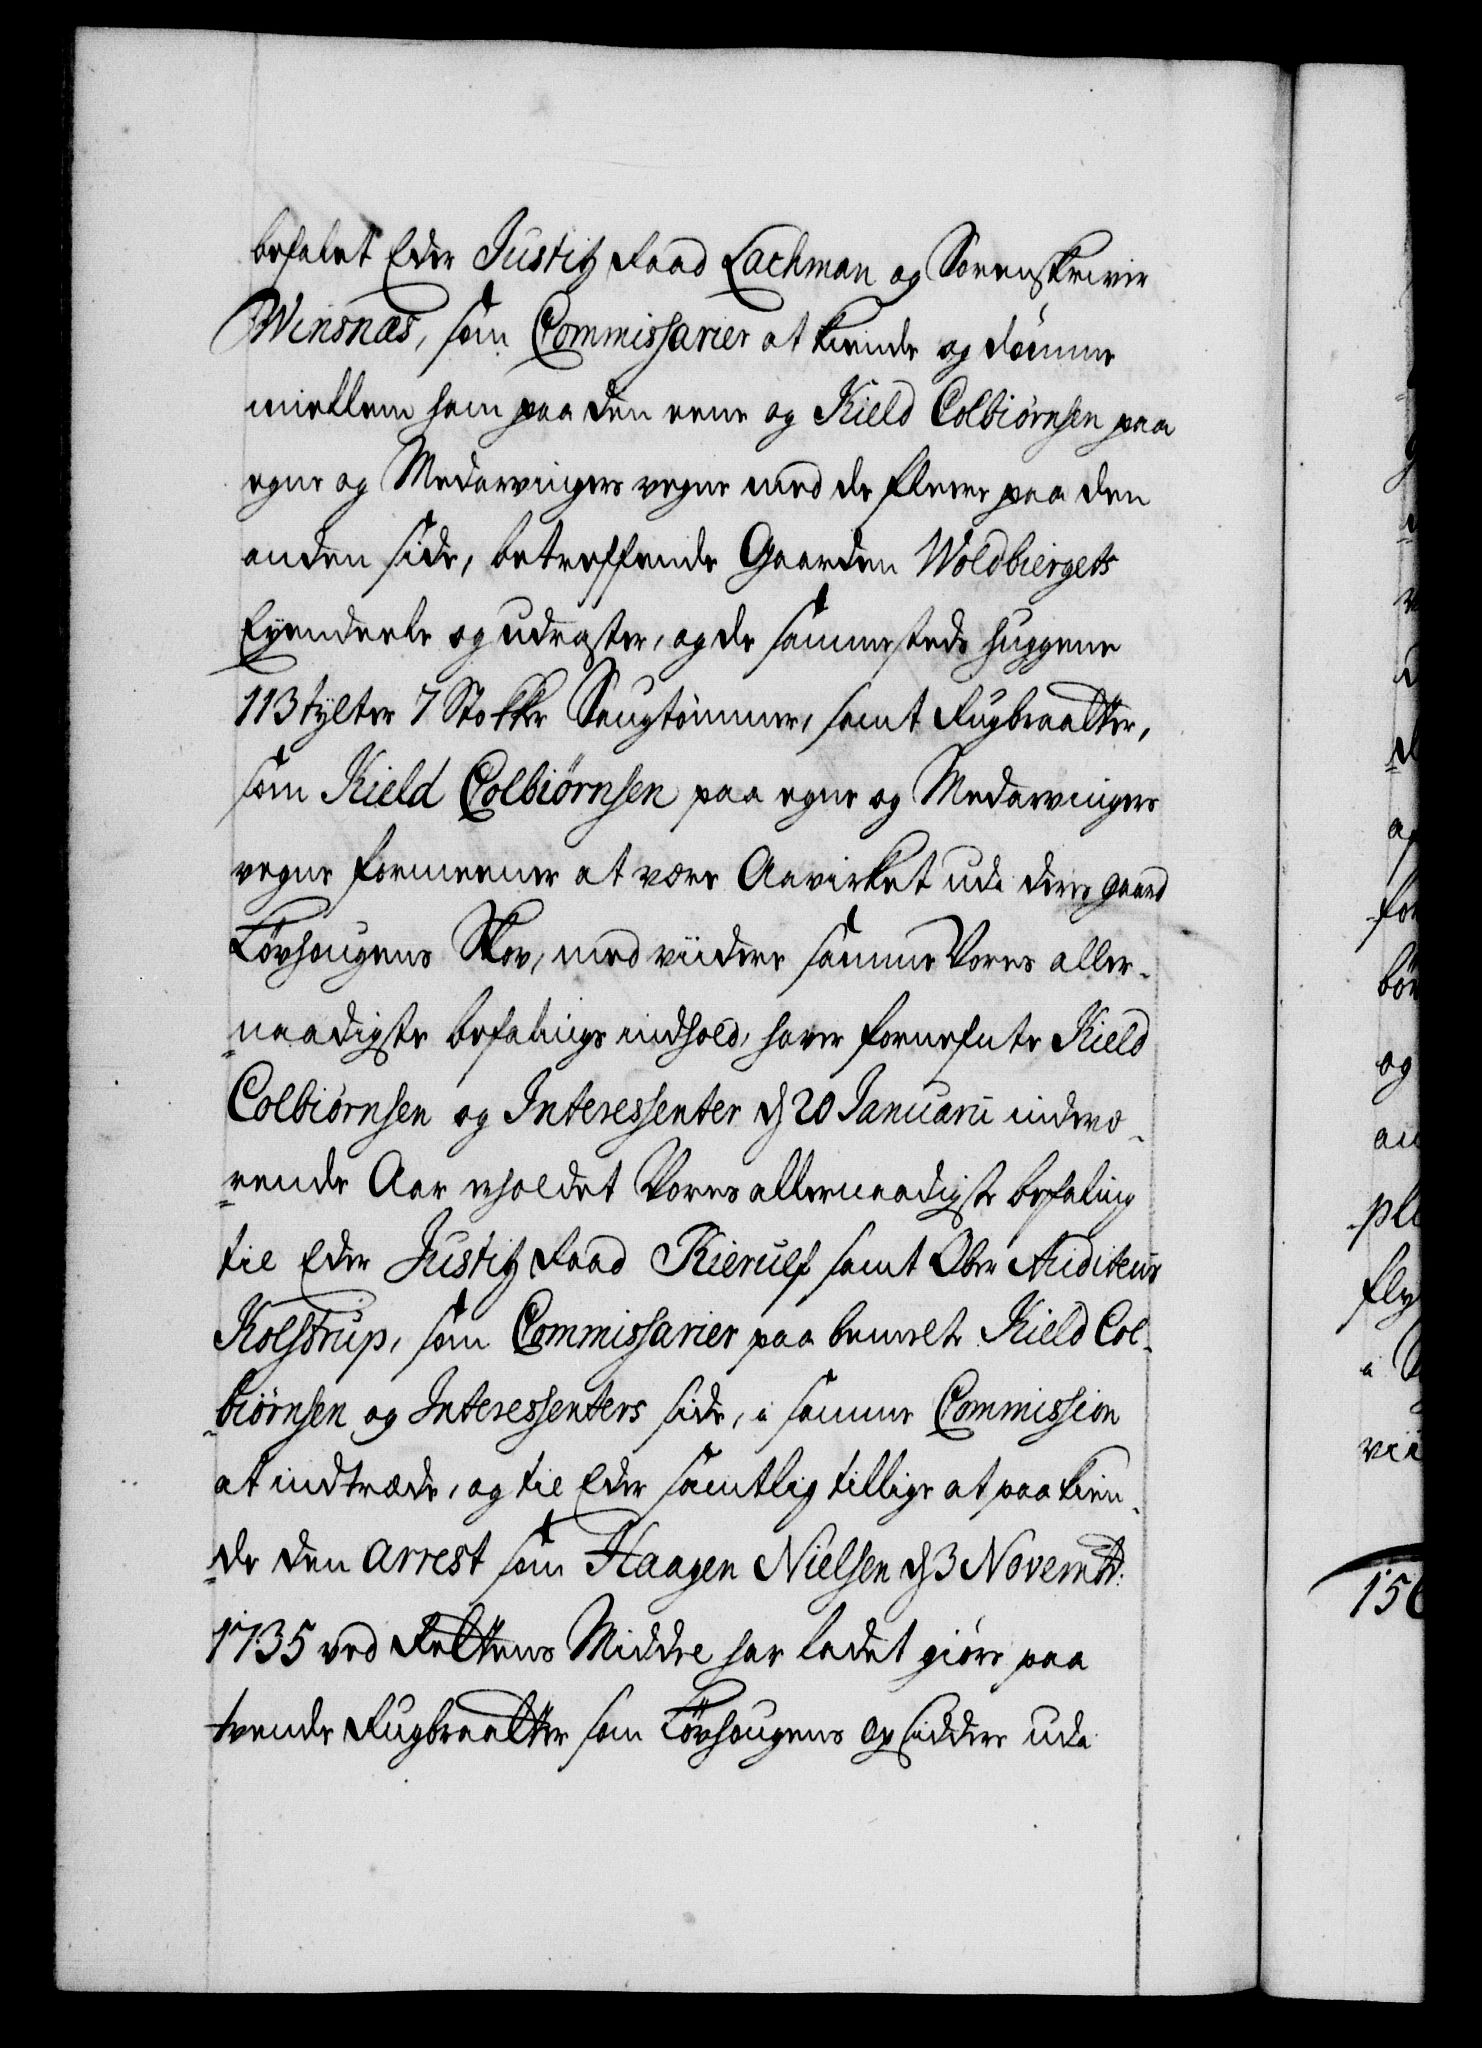 befalet Eder Justitz Raad Lachman og Sorenskriver
Winsnæs, som Commissarier at kiende og dømme
mellem ham paa den eene og Kield Colbiørnsen paa
egne og Medarvingers vegne med de fleere paa den
anden side, betreffende Gaarden Woldbiergets
Eyendeele og udraster, og de sammesteds huggene
113 tylter 7 Stokker Saugtømmer, samt Rugbraatter,
som Kield Colbiørnsen paa egne og Medarvingers
vegne formeener at være Aavirket udi deres gaard
Løvhougens Skov, med viidere samme Vores aller-
naadigste befalings indhold, haver fornefnte Kield
Colbiørnsen og Interessenter d 20 Januarii indevæ-
rende Aar erholdet Vores allernaadigste befaling
til Eder Justitz Raad Kierulf samt Ober Auditeur
Kolstrup, som Commissarier paa bemelte Kield Col-
biørnsen og Interessenters side, i samme Commission
at indtræde, og til Eder samtlig tillige at paakien-
de den Arrest som Haagen Nielsen d 3 Novembr:
1735 ved Rettens Middel har ladet giøre paa
tvende Rugbraatter som Løvhougens Opsiddere udi